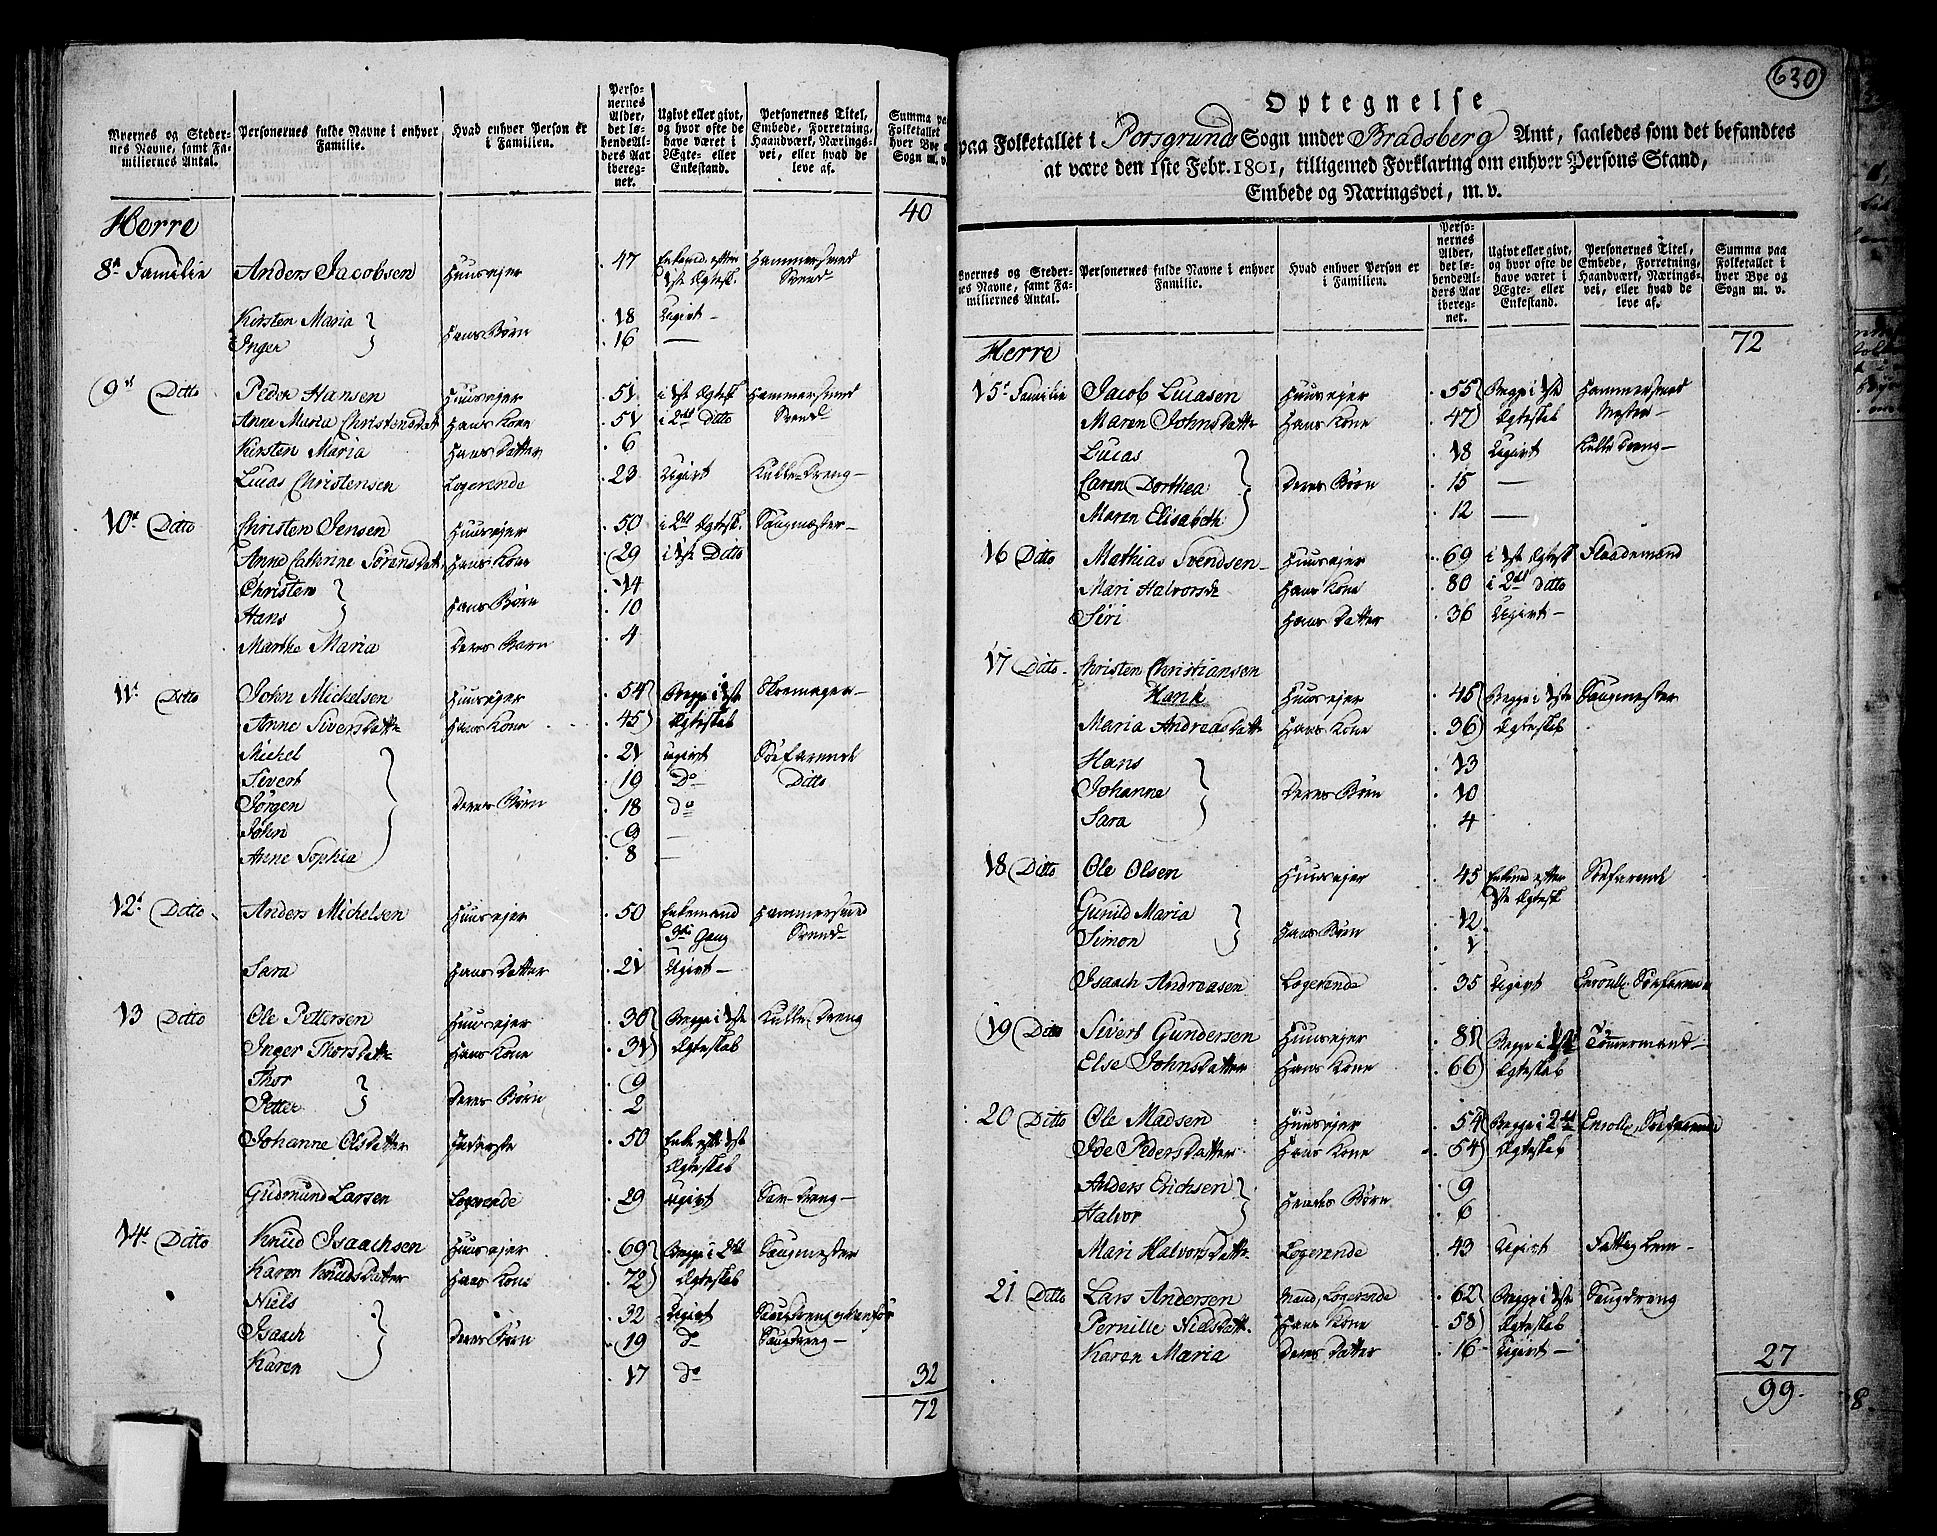 Byernes og Steder- | Personernes fulde Navne i enhver | Hvad enhver Person er | Perso- | Ugivt eller givt, | Personernes Titel, | Summa paa
nes Navne, samt Fa- | Familie. | i Familien. | nernes | og hvor ofte de | Embede, Forretning, | Folketallet
miliernes Antal. | Alder, | have været i | Haandværk, Nærings- | hver Bye
det lø- | Ægte- eller | vei, eller hvad de | Sogn m. v.
bende Al- | Enkestand. | leve af.
ders Aar
iberegnet.
Herre | 40
8de Familie | Anders Jacobsen | Huusejer | 47 | Enkemd. efter | Hammersmed
1ste Ægtesk. | Svend
Kirsten Maria | Hans Børn | 18 | Ugivt
Inger | 16 | —
9de Ditto | Peder Hansen | Huusejer | 51 | i 1ste Ægtesk. | Hammersmed
Anne Maria Christensdat | Hans Kone | 51 | i 2det Ditto | Svend
Kirsten Maria | Hans Datter | 6
Lucas Christensen | Logerende | 23 | Ugivt | Kulle-Dreng
10de Ditto | Christen Jensen | Huusejer | 50 | i 2det Ægtesk. | Saugmester
Anne Cathrine Sørensdat. | Hans Kone | 29 | i 1ste Ditto
Christen | Hans Børn | 14
Hans | 10
Marthe Maria | Deres Barn | 4
11te Ditto | John Michelsen | Huusejer | 54 | Begge i 1ste | Skomager
Anne Siversdattr | Hans Kone | 45 | Ægteskab
Michel | Deres Børn | 21 | ugivt | Søefarende
Sivert | 19 | Do | Ditto
Jørgen | 18 | do
John | 9 | —
Anne Sophia | 8 | —
12te Ditto | Anders Michelsen | Huusejer | 50 | Enkemand | Hammersmed
3die Gang | Svend
Sara | Hans Datter | 21 | Ugivt
13 Ditto | Ole Pettersen | Huusejer | 30 | Begge i 1ste | Kulle-Dreng
Inger Thorsdattr | Hans Kone | 31 | Ægteskab
Thor | Deres Børn | 9
Petter | 2
Johanne Olsdatter | Inderste | 50 | Enke efter 1ste
Ægteskab
Gudmund Larsen | Logerende | 29 | Ugivt | Sav-Dreng
14de Ditto | Knud Isaachsen | Huusejer | 69 | Begge i 2det | Saugmester
Karen Knudsdatter | Hans Kone | 72 | Ægteskab
Niels | Deres Børn | 32 | Ugivt | Saugdreng
Isaach | 19 | do | Saugdreng
Karen | 17 | do | 32
72
630
Optegnelse
paa Folketallet i Porsgrunds Sogn under Bradsberg Amt, saaledes som det befandtes
at være den 1ste Febr. 1801, tilligemed Forklaring om enhver Persons Stand,
Embede og Næringsvei, m. v.
Byernes og Steder- | Personernes fulde Navne i enhver | Hvad enhver Person er | Perso- | Ugivt eller givt, | Personernes Titel, | Summa paa
nes Navne, samt Fa- | Familie. | i Familien. | nernes | og hvor ofte de | Embede, Forretning, | Folketallet i
miliernes Antal. | Alder, | have været i | Haandværk, Nærings- | hver Bye og
det lø- | Ægte- eller | vei, eller hvad de | Sogn m. v.
bende Al- | Enkestand. | leve af.
ders Aar
iberegnet.
Herre | 72
15de Familie | Jacob Lucasen | Huusejer | 55 | Begge i 1ste | Hammersmed
Maren Johnsdattr | Hans Kone | 47 | Ægteskab | Mester
Lucas | Deres Børn | 18 | Ugivt | Kulle Dreng
Caren Dorthea | 15 | —
Maren Elisabeth | 12 | —
16 Ditto | Mathias Svendsen | Huusejer | 69 | i 1ste Ægtesk. | Flaademand
Mari Halvorsdr | Hans Kone | 80 | i 2det Ditto
Siri | Hans Datter | 36 | Ugivt
17 Ditto | Christen Christiansen
Hank | Huusejer | 45 | Begge i 1ste | Saugmester
Maria Andreasdattr | Hans Kone | 36 | Ægteskab
Hans | Deres Børn | 13
Johanne | 10
Sara | 4
18 Ditto | Ole Olsen | Huusejer | 45 | Enkemd. efter | Søefarende
1ste Ægtesk.
Gunild Maria | Hans Børn | 12
Simon | 1
Isaach Andreasen | Logerende | 35 | Ugivt | Enroull. Søefarende
19 Ditto | Sivert Gundersen | Huusejer | 81 | Begge i 1ste | Tømmermand
Else Johnsdatter | Hans Kone | 66 | Ægteskab
20 Ditto | Ole Madsen | Huusejer | 54 | Begge i 2det | Enroll. Søefarende
Ide Pedersdatter | Hans Kone | 54 | Ægteskab
Anders Erichsen | Hendes Børn | 9
Halvor | 6
Mari Halvorsdattr | Logerende | 43 | Ugivt | Fattig Lem
21 Ditto | Lars Andersen | Mand, Logerende | 62 | Begge i 1ste | Saugdreng
Pernille Nielsdattr. | Hans Kone | 58 | Ægteskab
Karen Maria | Deres Datter | 16 | Ugivt | 27
99.